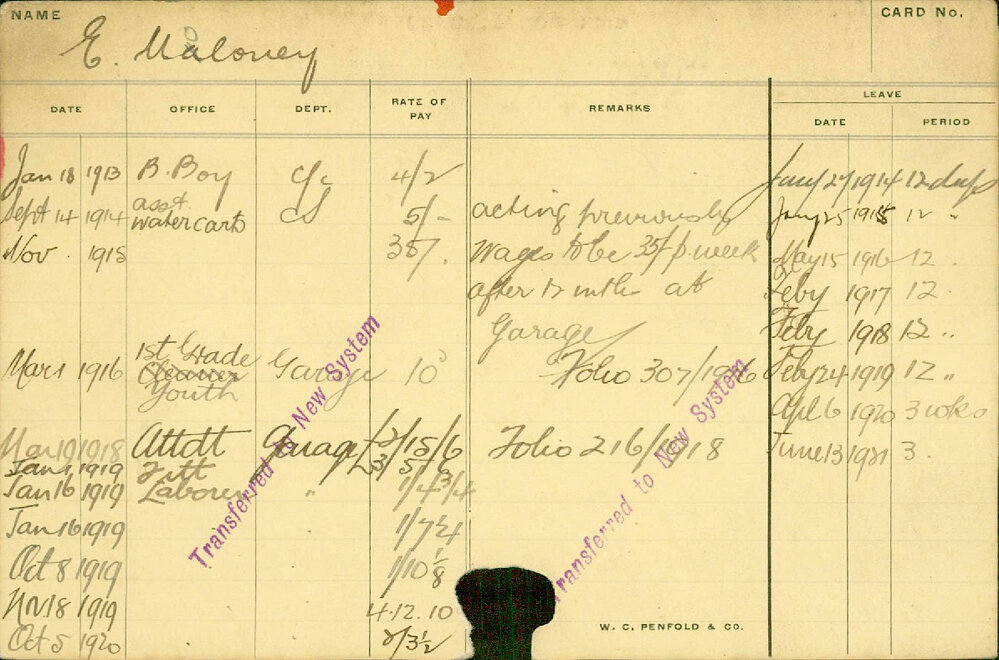 NAME
CARD No.
E. Maloney
DATE OFFICE DEPT. RATE OF PAY REMARKS LEAVE
DATE PERIOD
Jan 18 1913 B. Boy c/c 4/2 Jany 27 1914 12 days
Sept 14 1914 asst. water carts 5/- acting previously Jany 25 1915 12 "
Nov. 1915 35/. Wages to be 35/ p. week May 15 1916 12
after 12 mths at Feby 1917 12
Garage Feby 1918 12 "
Mar 1 1916 1st Grade Cleaner Youth Garage 10 Folio 307/1916 Feby 24 1919 12 "
Apl 6 1920 3 wks
Mar 19 1918 Attdt Garage £2/15/6 Folio 216/1918 June 13 1921 3.
Jan 1 1919 Fitt £3/5/6
Jan 16 1919 Laborer " 1/4 3/4
Jan 16 1919 1/7 1/4
Oct 8 1919 1/10 1/8
Nov 18 1919 4.12.10
Oct 5 1920 2/3 1/2
Transferred to New System
Transferred to New System
W. C. PENFOLD & CO.